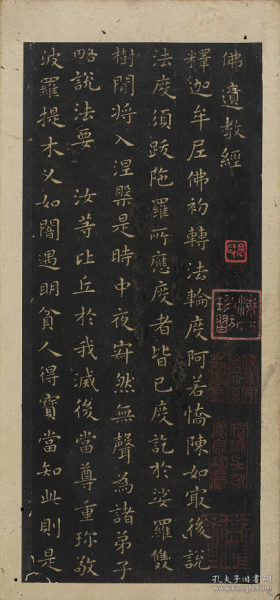 佛遺教經
釋迦牟尼佛初轉法輪度阿若憍陳如最後說
法度須跋陁羅所應度者皆已度訖於娑羅雙
樹閒將入涅槃是時中夜寂然無聲為諸弟子
略說法要 汝等比丘於我滅後當尊重珎敬
波羅提木叉如闇遇明貧人得寶當知此則是
孔夫子旧书网